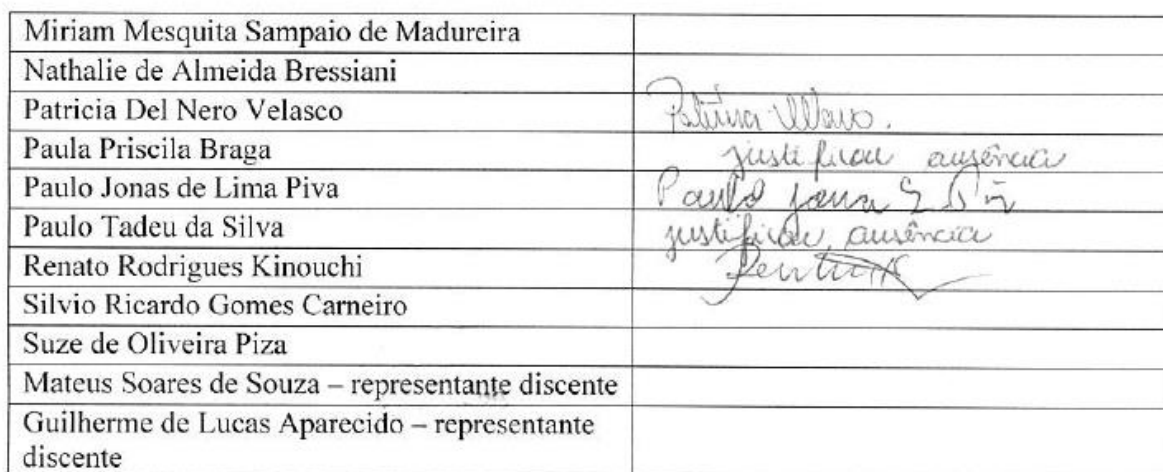 Miriam Mesquita Sampaio de Madureira
Nathalie de Almeida Bressiani
Patricia Del Nero Velasco
Paula Priscila Braga justificou ausência
Paulo Jonas de Lima Piva Paulo Jonas
Paulo Tadeu da Silva justificou ausência
Renato Rodrigues Kinouchi
Silvio Ricardo Gomes Carneiro
Suze de Oliveira Piza
Mateus Soares de Souza – representante discente
Guilherme de Lucas Aparecido – representante
discente